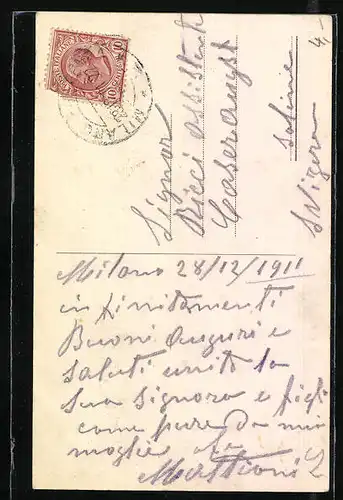 4,-
MILANO
10 10
Signor
Ricci Assistent
Caseraugst
Saline
Svizera
Milano 28/12/1911
infinitamenti
Buoni Auguri e
saluti unito la
sua Signora e figli
come pure da mia
moglie
Mattioni L